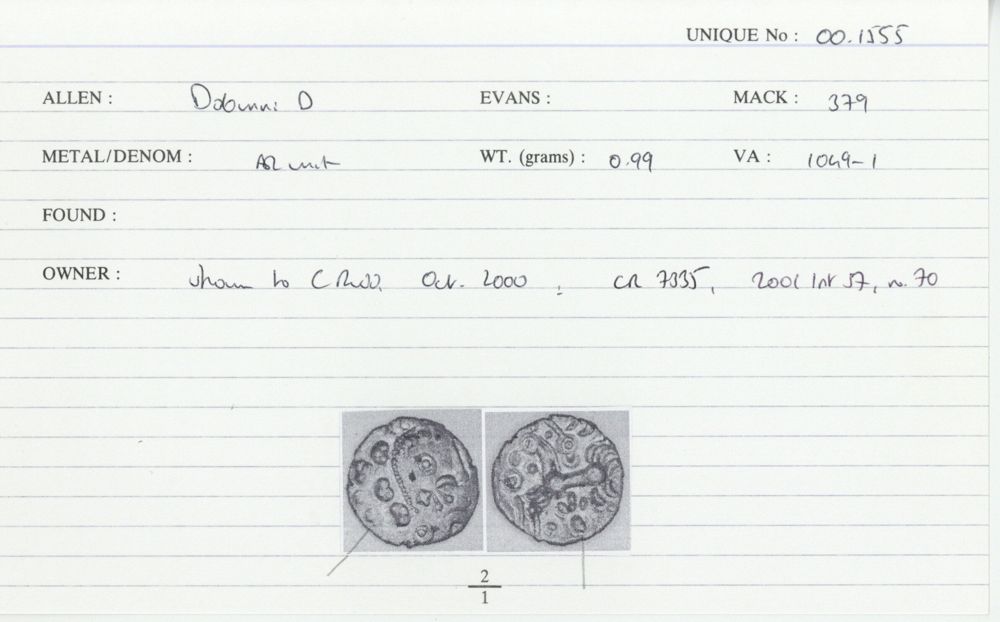 UNIQUE No : 00.1555
ALLEN : Dobunni D EVANS : MACK : 379
METAL/DENOM : AR unit WT. (grams) : 0.99 VA : 1049-1
FOUND :
OWNER : shown to CR Oct. 2000 ; CR 7335, 2001 37, no. 70
2
1